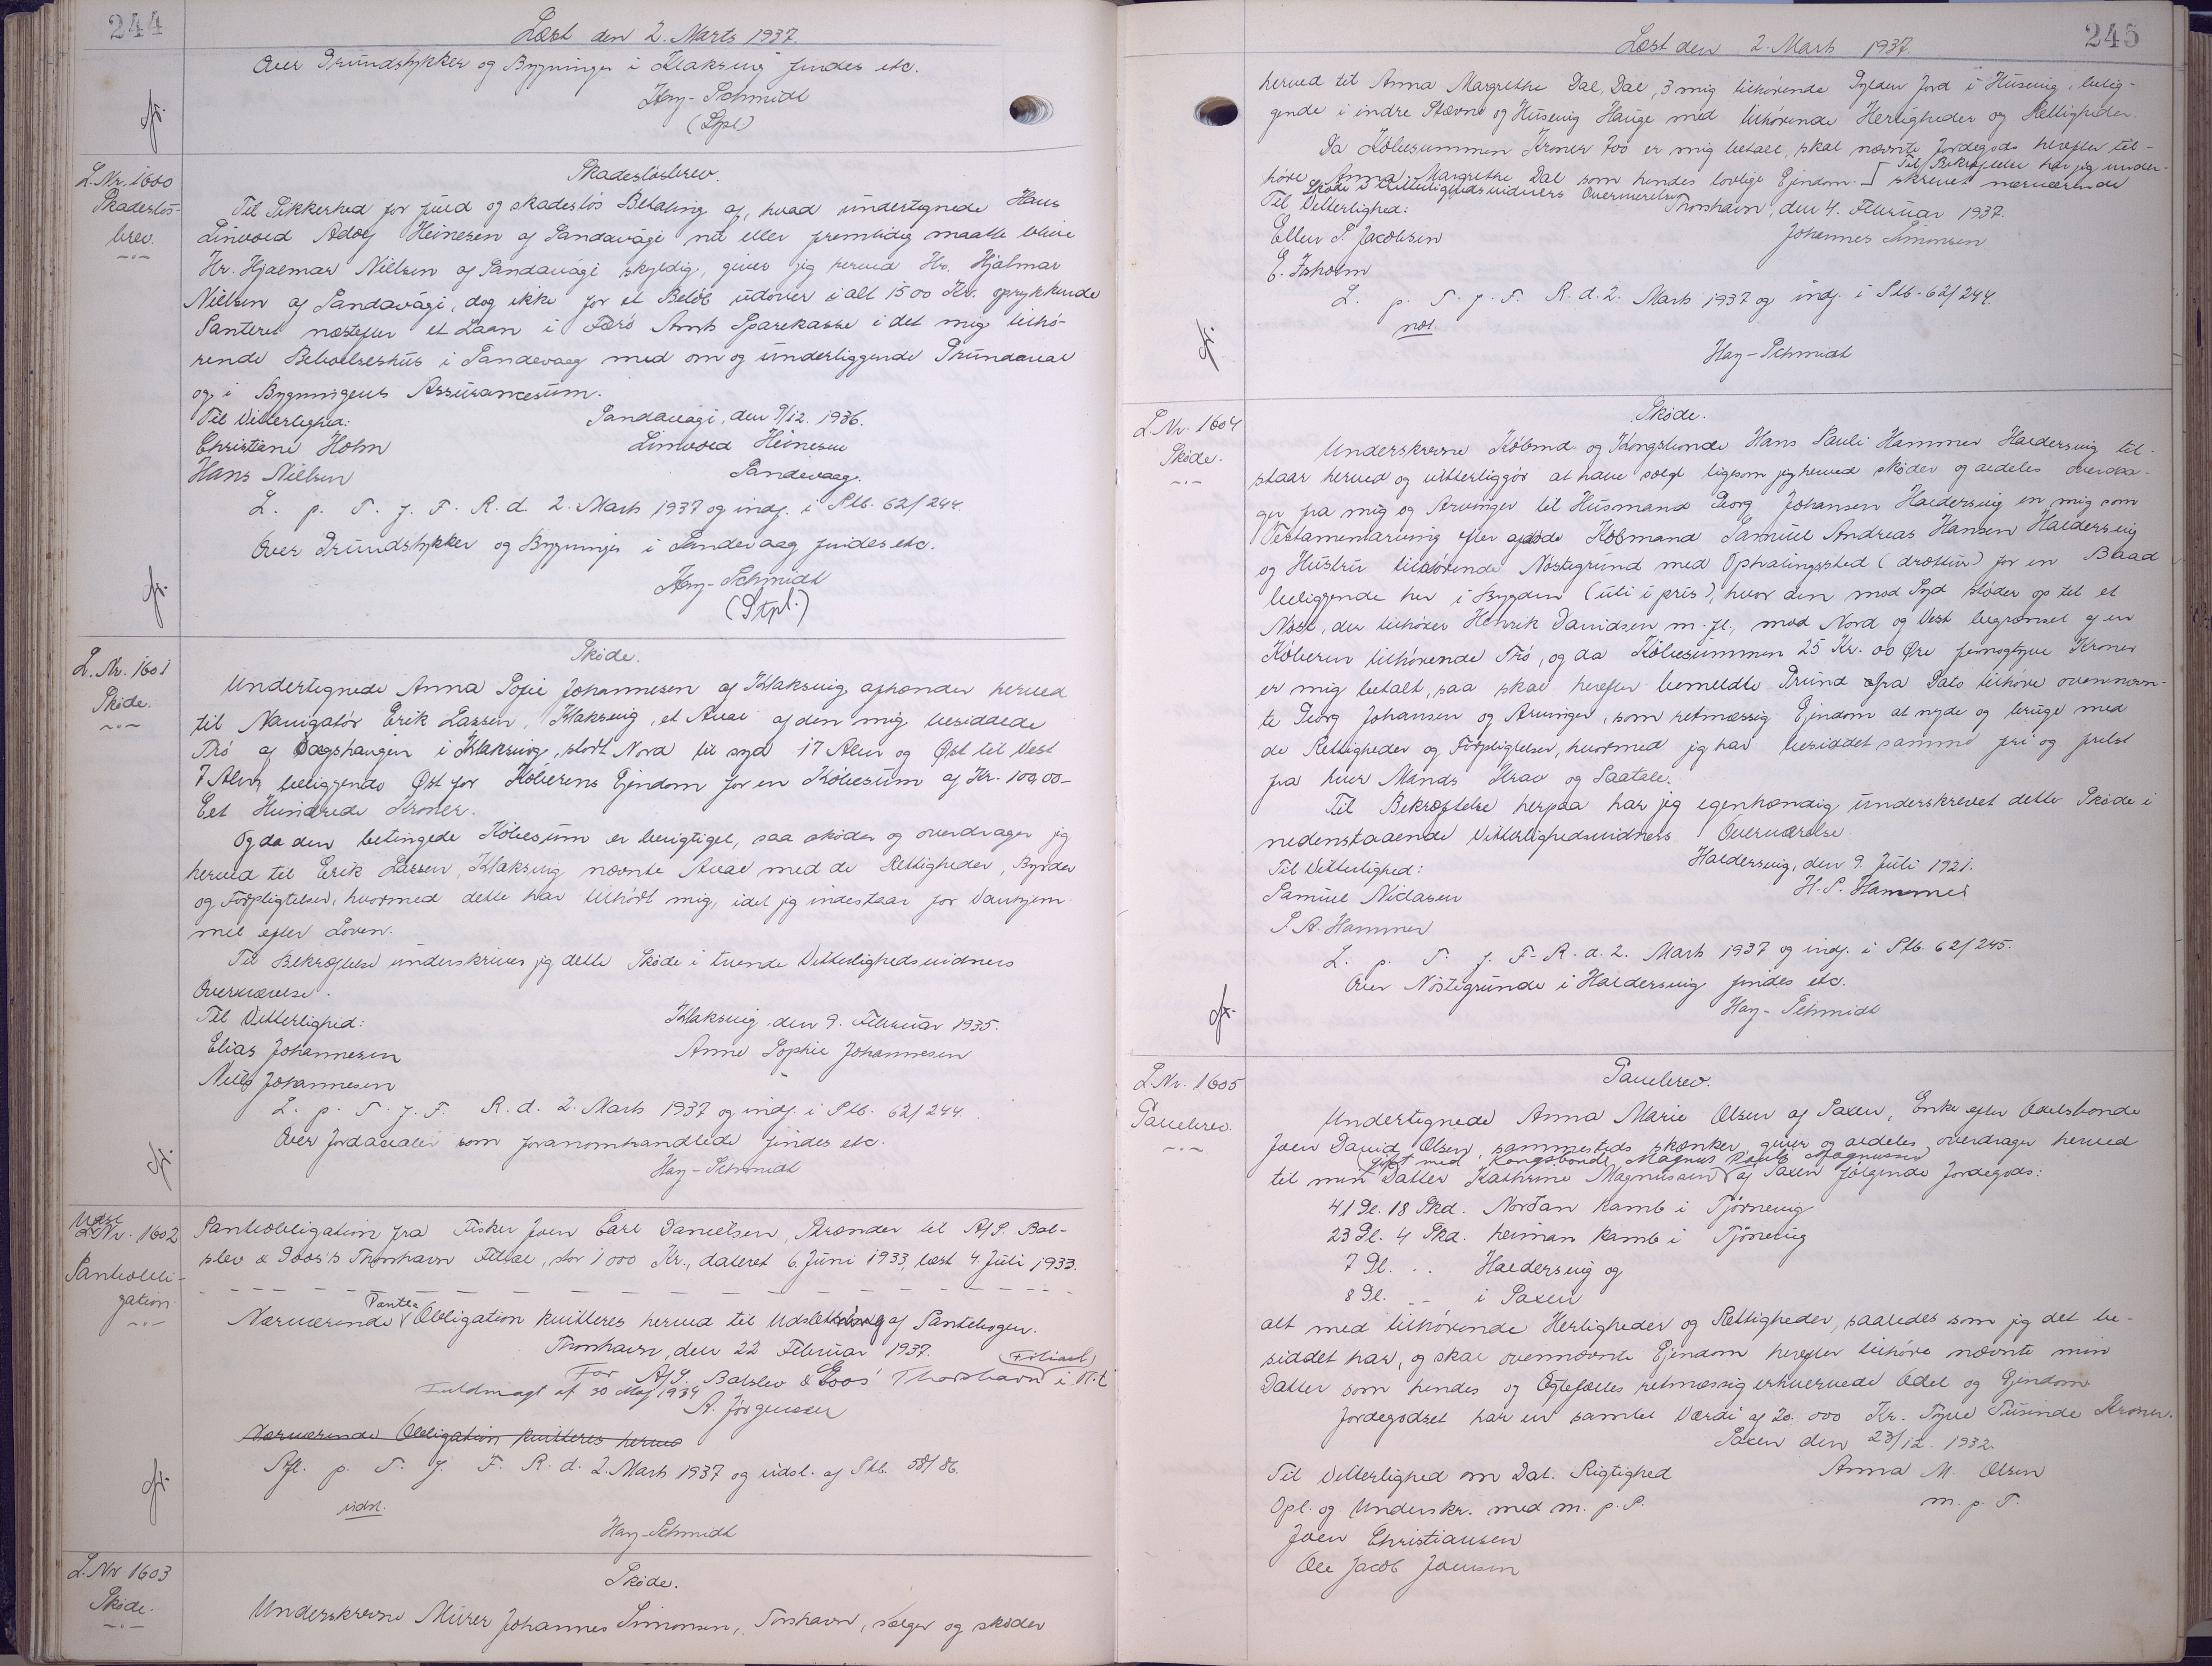 244
Læst den 2. Marts 1937.
Over Grundstykker og Bygninger i Klaksvig findes etc.
Hay-Schmidt
(Stpl.)
L. Nr. 1600
Skadesløs-
brev.
Skadesløsbrev.
Til Sikkerhed for fuld og skadesløs Betaling af, hvad undertegnede Hans
Linvoed Adolf Heinesen af Sandavági nu eller fremtidig maatte blive
Hr. Hjalmar Nielsen af Sandavági skyldig, giver jeg herved Hr. Hjalmar
Nielsen af Sandavági, dog ikke for et Beløb udover i alt 1500 Kr. oprykkende
Panteret næstefter et Laan i Færø Amts Sparekasse i det mig tilhø-
rende Beboelseshus i Sandevaag med om og underliggende Grundareal
og i Bygningens Assurancesum.
Til Vitterlighed:
Sandavági, den 9/12. 1936.
Christiane Holm
Linvoed Heinesen
Hans Nielsen
Sandevaag.
L. p. T. f. F. R. d. 2. Marts 1937 og indf. i Ptb. 62/244.
Over Grundstykker og Bygninger i Sandevaag findes etc.
Hay-Schmidt
(Stpl.)
L. Nr. 1601
Skøde.
Skøde.
Undertegnede Anna Sofie Johannesen af Klaksvig afhænder herved
til Navigatør Erik Lassen, Klaksvig, et Areal af den mig besiddede
Trø af Bøgshaugen i Klaksvig, stort Nord til syd 17 Alen og Øst til Vest
7 Alen, beliggende Øst for Køberens Ejendom for en Købesum af Kr. 100,00-
Eet Hundrede Kroner.
Og da den betingede Købesum er berigtiget, saa skøder og overdrager jeg
herved til Erik Lassen, Klaksvig nævnte Areal med de Rettigheder, Byrder
og Forpligtelser, hvormed dette har tilhørt mig, idet jeg indestaar for Vanhjem-
mel efter Loven.
Til Bekræftelse underskriver jeg dette Skøde i tvende Vitterlighedsvidners
Overværelse.
Til Vitterlighed:
Klaksvig den 9. Februar 1935.
Elias Johannesen
Anne Sophie Johannesen
Niels Johannesen
L. p. T. f. F. R. d. 2. Marts 1937 og indf. i Ptb. 62/244.
Over Jordarealer som foranomhandlede findes etc.
Hay-Schmidt
L. Nr. 1602
Pantobli-
gation.
Pantobligation fra Fisker Joen Carl Danielsen, Strender til A/S. Bal-
slev & Goos's Thorshavn Filial, stor 1000 Kr., dateret 6. Juni 1933, læst 4. Juli 1933.
Nærværende Pante Obligation kvitteres herved til Udslettelse af Pantebogen.
Thorshavn, den 22 Februar 1937.
For A/S. Balslev & Goos' Thorshavn Filial i M.t
Fuldmagt af 30 Maj 1934
A. Jørgensen
Nærværende Obligation kvitteres herved
Afl. p. T. f. F. R. d. 2. Marts 1937 og udsl. af Ptb. 58/86.
udsl.
Hay-Schmidt
L. Nr 1603
Skøde.
Skøde.
Underskrevne Murer Johannes Simonsen, Torshavn, sælger og skøder
245
Læst den 2. Marts 1937.
herved til Anna Margrethe Dal, Dal, 3 mig tilhørende Gylden Jord i Husevig, belig-
gende i indre Stævne og Husevig Hauge med tilhørende Herligheder og Rettigheder.
Da Købesummen Kroner 700 er mig betalt, skal nævnte Jordegods herefter til-
høre Anna Margrethe Dal som hendes lovlige Ejendom. [Til Bekræftelse har jeg under-
skrevet nærværende
Skøde i Vitterlighedsvidners Overværelse
Til Vitterlighed:
Thorshavn, den 4. Februar 1937.
Ellen S. Jacobsen
Johannes Simonsen
E. Isholm
L. p. T. f. F. R. d. 2. Marts 1937 og indf. i Ptb. 62/244.
Hay-Schmidt
L Nr. 1604
Skøde.
Skøde.
Underskrevne Købmd. og Kongsbonde Hans Pauli Hammer Haldersvig til-
staar herved og vitterliggør at have solgt ligesom jeg herved skøder og aldeles overdra-
ger fra mig og Arvinger til Husmand Georg Johansen Haldersvig en mig som
Testamentarving efter afdøde Købmand Samuel Andreas Hansen Haldersvig
og Hustru tilhørende Nøstegrund med Ophalingssted (drættur) for en Baad
beliggende her i Bygden (úti i pris), hvor den mod Syd støder op til et
Nøst, der tilhører Henrik Davidsen m. fl., mod Nord og Vest begrænset af en
Køberen tilhørende Trø, og da Købesummen 25 Kr. 00 Øre femogtyve Kroner
er mig betalt, saa skal herefter bemeldte Grund fra Dato tilhøre ovennævn-
te Georg Johansen og Arvinger, som retmæssig Ejendom at nyde og bruge med
de Rettigheder og Forpligtelser, hvormed jeg har besiddet samme fri og frelst
fra hver Mands Krav og Paatale.
Til Bekræftelse herpaa har jeg egenhændig underskrevet dette Skøde i
nedenstaaende Vitterlighedsvidners Overværelse.
Til Vitterlighed:
Haldersvig, den 9. Juli 1921.
Samuel Niclasen
H. P. Hammer
S. A. Hammer
L. p. T. f. F. R. d. 2. Marts 1937 og indf. i Ptb. 62/245.
Over Nøstegrunde i Haldersvig findes etc.
Hay-Schmidt
L Nr. 1605
Gavebrev.
Gavebrev.
Undertegnede Anna Marie Olsen af Saxen, Enke efter Odelsbonde
Joen David Olsen, sammesteds skænker, giver og aldeles overdrager herved
gift med Kongsbonde Magnus Pauli Magnussen
til min Datter Kathrine Magnussen af Saxen følgende Jordegods:
41 Gl. 18 Skd. Norðan Kamb i Tjørnevig
23 Gl. 4 Skd. heiman Kamb i Tjørnevig
7 Gl. .. Haldersvig og
8 Gl. .. i Saxen
alt med tilhørende Herligheder og Rettigheder, saaledes som jeg det be-
siddet har, og skal ovennævnte Ejendom herefter tilhøre nævnte min
Datter som hendes og Ægtefælles retmæssig erhvervede Odel og Ejendom
Jordegodset har en samlet Værdi af 20.000 Kr. Tyve Tusinde Kroner.
Saxen den 23/12. 1932.
Til Vitterlighed om Dat. Rigtighed
Anna M. Olsen
Opl. og Underskr. med m. p. P.
m. p. P.
Joen Christiansen
Ole Jacob Joensen